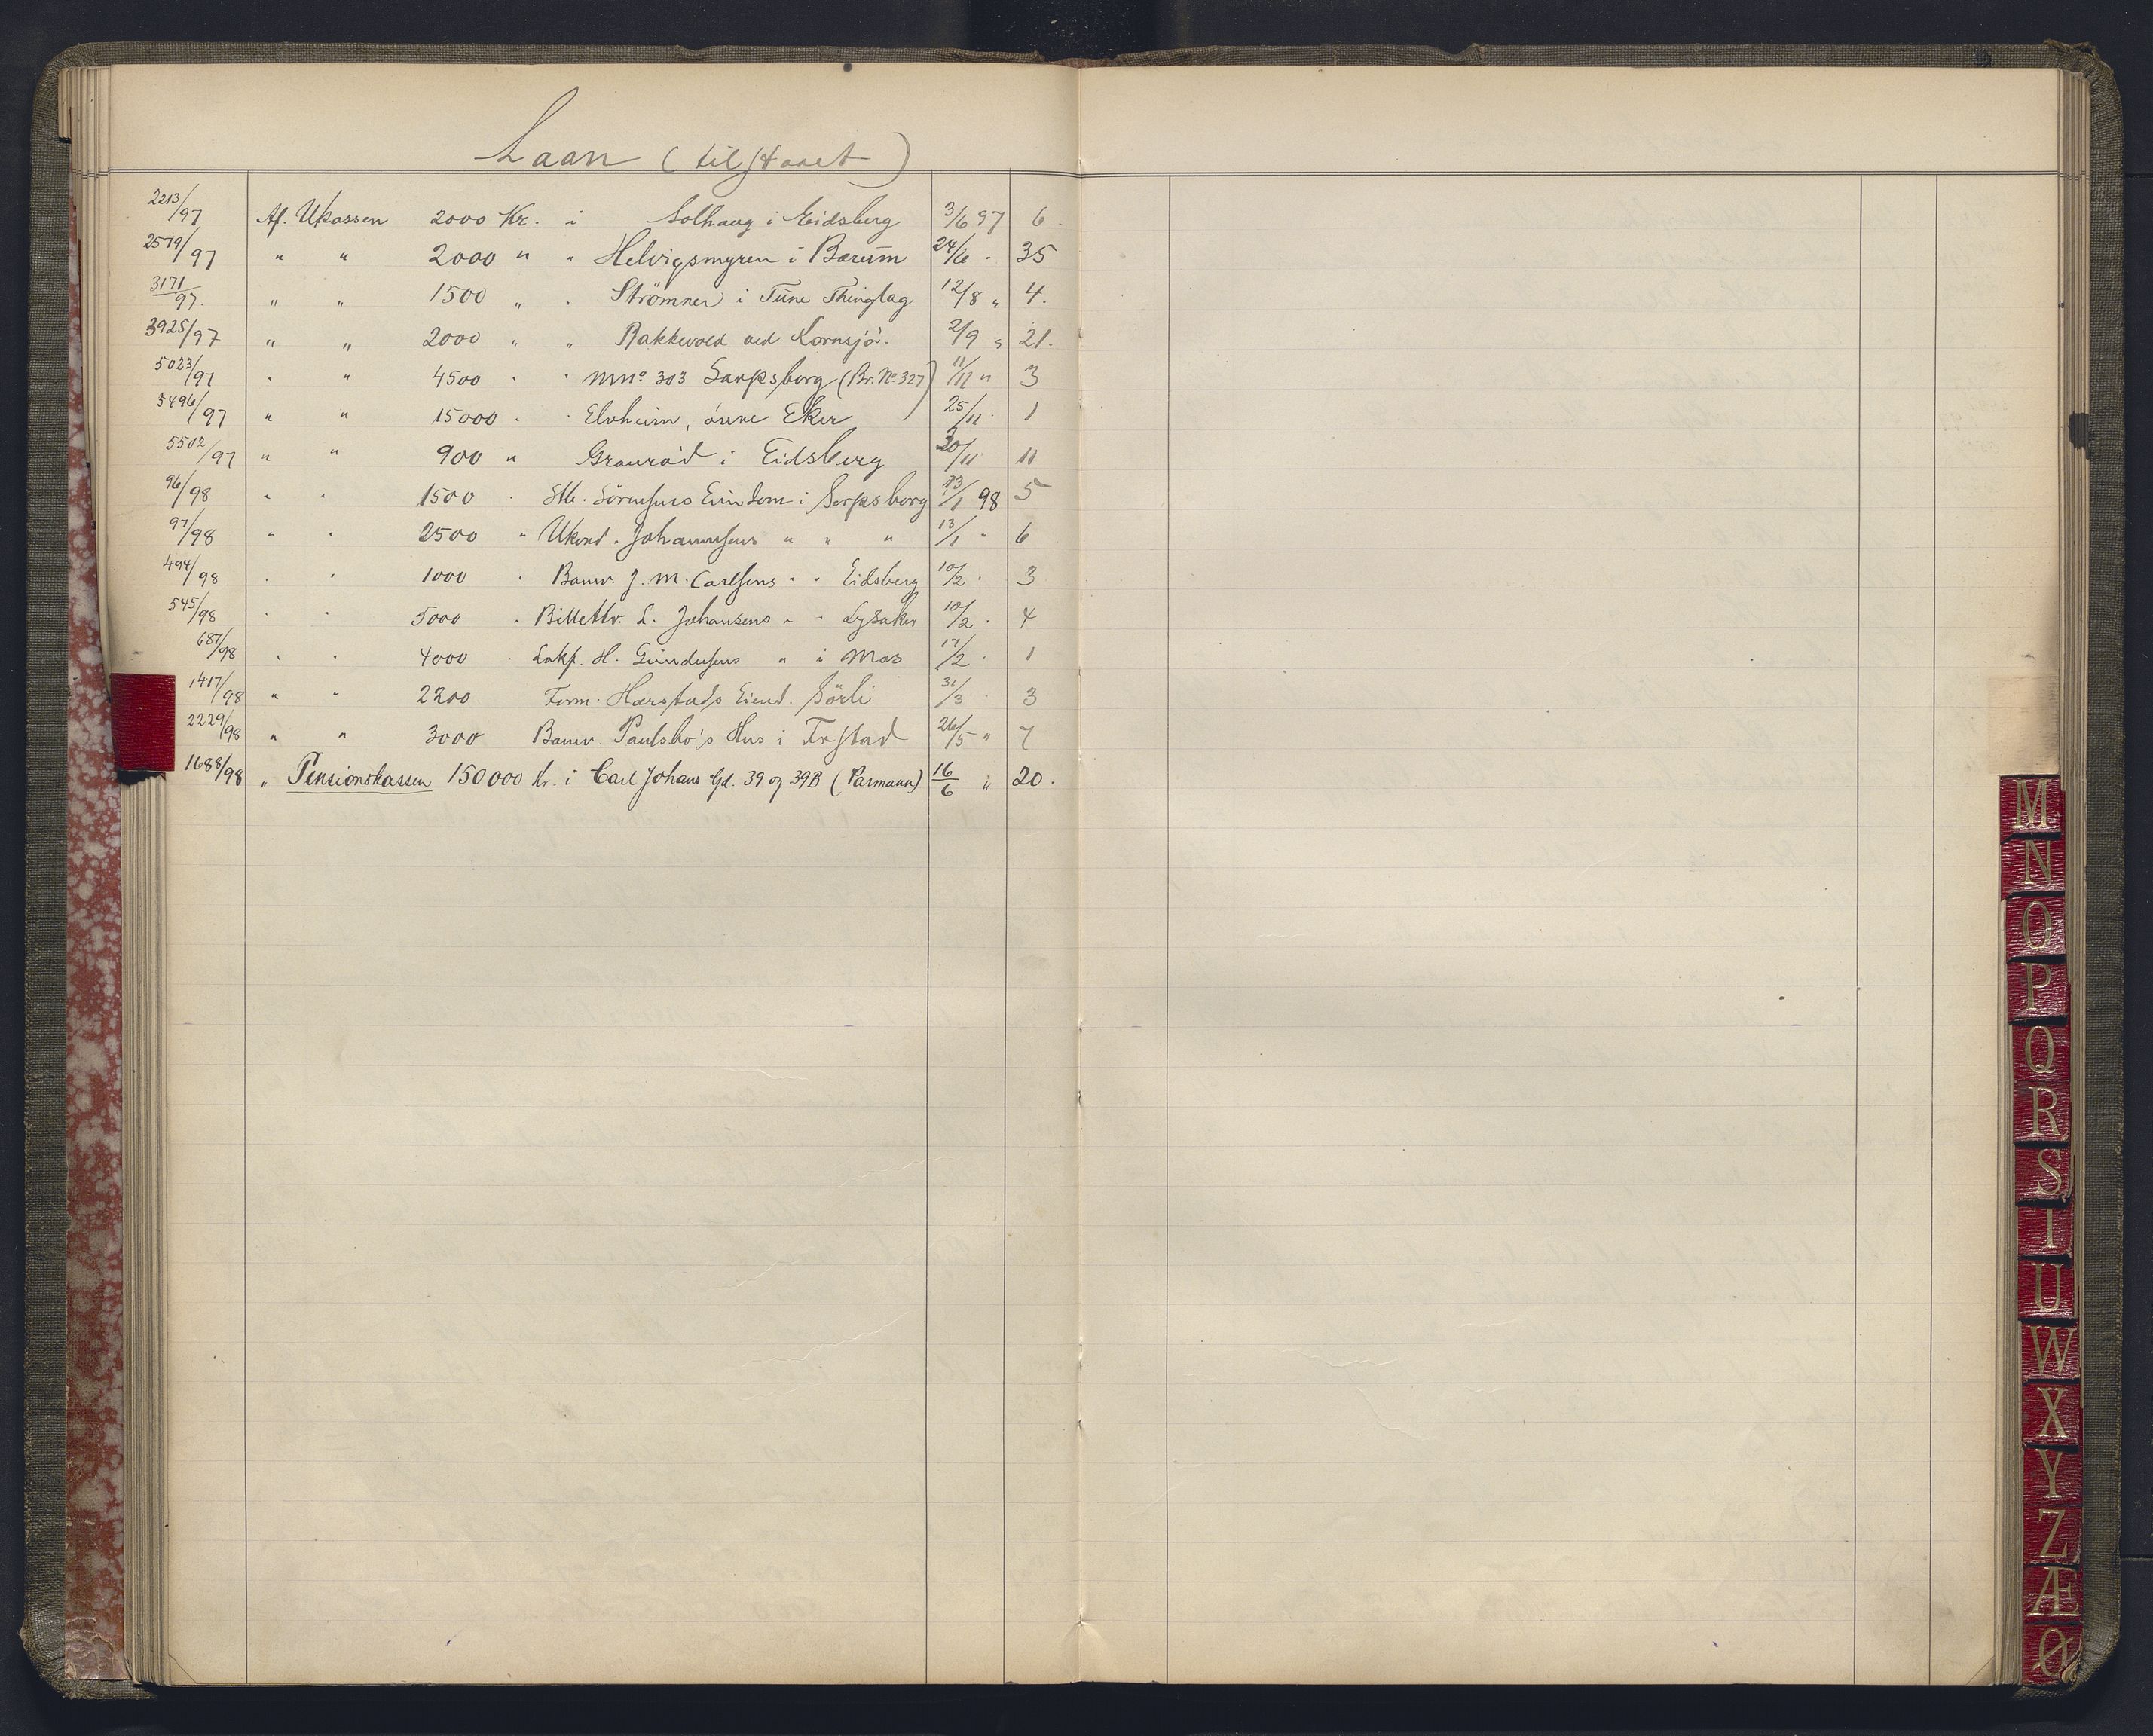 Laan (tilstaaet)
2213/97 Af. Ukassen 2000 Kr. i Solhaug i Eidsberg 3/6 97 6.
2579/97 " " 2000 " " Helvigsmyren i Bærum 24/6 " 35
3171/97. " " 1500 " " Strömnes i Tune Thinglag 12/8 " 4.
3925/97 " " 2000 " " Bakkevold ved Kornsjö. 2/9 " 21.
5023/97 " " 4500 " " Mno 303 Sarpsborg (Br. No 327) 11/11 " 3
5496/97 " " 15000 " " Elvheim, övre Eker 25/11 " 1
5502/97 " " 900 " Grauröd i Eidsberg 30/11 11
96/98 " " 1500 " Stb. Sörensens Eiendom i Sarpsborg 13/1 98 5
97/98 " " 2500 " Ukond. Johannesens " " " 13/1 " 6
494/98 " " 1000 " Banv. J. M. Carlsens " " Eidsberg 10/2 " 3
545/98 " " 5000 " Billettr. L. Johansens " " Lysaker 10/2 " 4
687/98 " " 4000 " Lokf. H. Gundersens " i Moss 17/2 " 1
1417/98 " " 2200 Form. Harstads Eiend. Sörli 31/3 " 3
2229/98 " " 3000 Banv. Paulsbo's Hus i Frstad 26/5 " 7
1688/98 " Pensionskassen 150000 Kr. i Carl Johans Gd. 39 og 39B (Parmann) 16/6 " 20.
M
N
O
P
Q
R
S
T
U
W
X
Y
Z
Æ
Ø